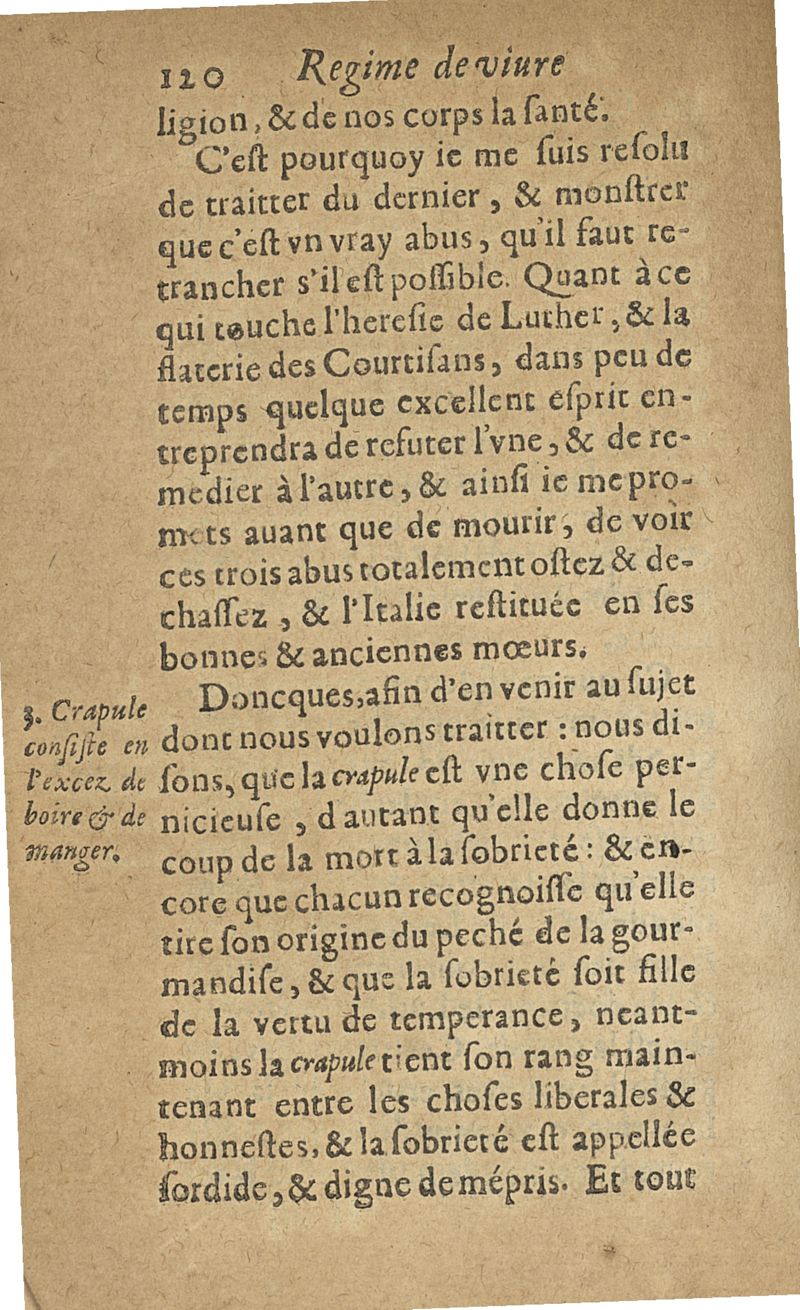 120 Regime de viure
ligion, & de nos corps la ſanté.
C'eſt pourquoy ie me ſuis reſolu
de traitter du dernier, & monſtrer
que c'eſt vn vray abus, qu'il faut re-
trancher s'il eſt poſſible. Quant à ce
qui touche l'hereſie de Luther, & la
flaterie des Courtiſans, dans peu de
temps quelque excellent eſprit en-
treprendra de refuter l'vne, & de re-
medier à l'autre, & ainſi ie me pro-
mets auant que de mourir, de voir
ces trois abus totalement oſtez & de-
chaſſez, & l'Italie reſtituée en ſes
bonnes & anciennes mœurs.
Doncques, afin d'en venir au ſujet
dont nous voulons traitter : nous di-
ſons, que la crapule eſt vne choſe per-
nicieuſe, d'autant qu'elle donne le
coup de la mort à la ſobrieté : & en-
core que chacun recognoiſſe qu'elle
tire ſon origine du peché de la gour-
mandiſe, & que la ſobrieté ſoit fille
de la vertu de temperance, neant-
moins la crapule tient ſon rang main-
tenant entre les choſes liberales &
honneſtes, & la ſobrieté eſt appellée
ſordide, & digne de mépris. Et tout
3. Crapule
conſiſte en
l'excez de
boire & de
manger.